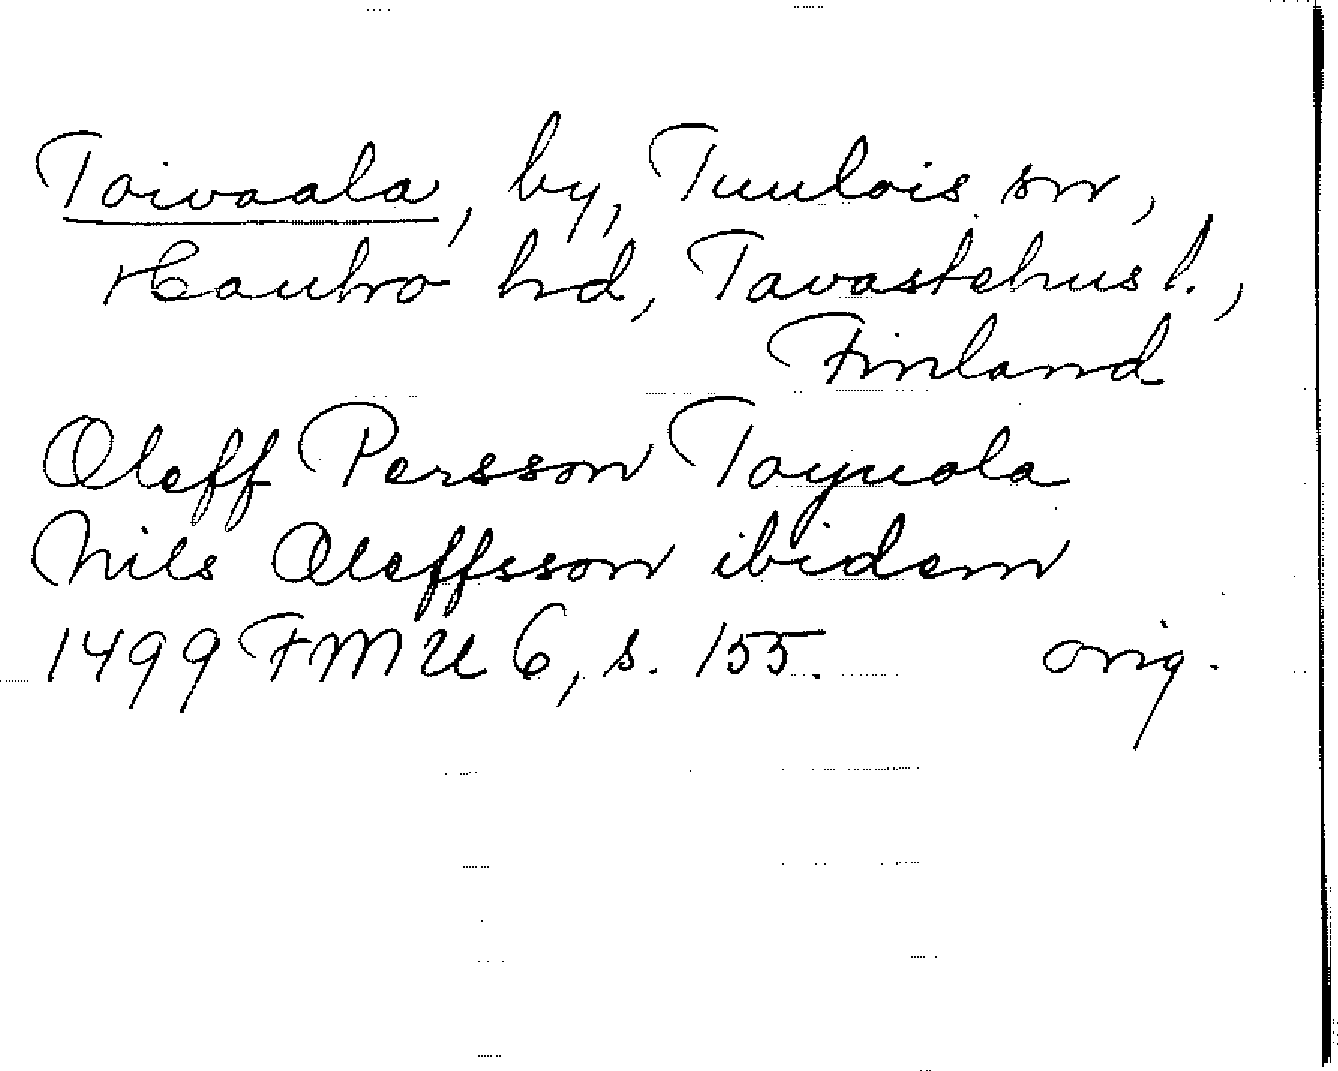 Toivaala, by, Tuulois sn,
Hauho hd, Tavastehus l.,
Finland
Oleff Persson Toyuala
Nils Oleffsson ibidem
1499 FMU 6, s. 155. orig.